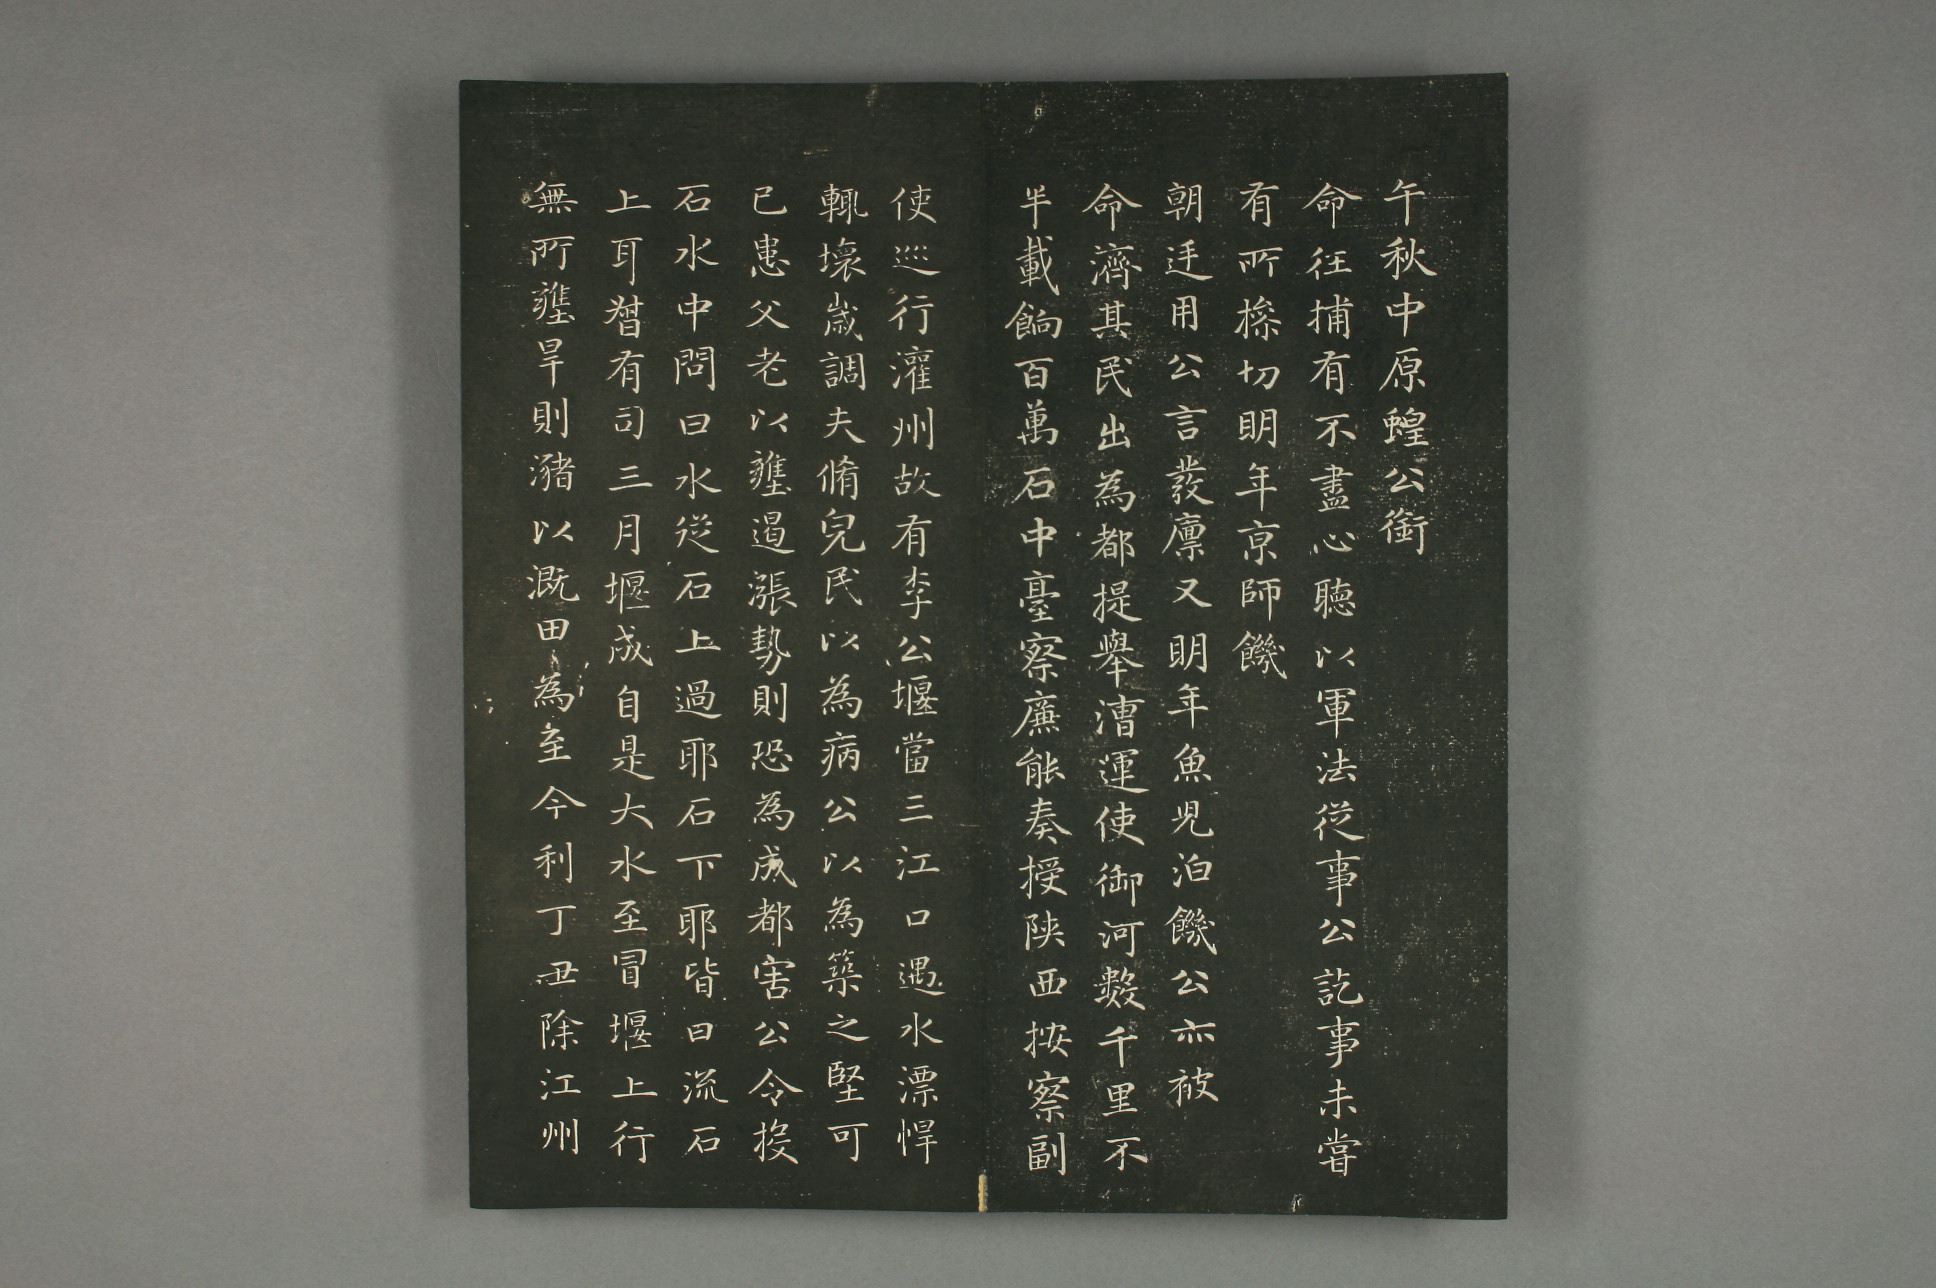 午秋中原蝗公銜
命往捕有不盡心聽以軍法從事公訖事未嘗
有所搽切明年京師饑
朝廷用公言發廩又明年魚児泊饑公亦被
命濟其民出為都提舉漕運使御河數千里不
半載餉百萬石中臺察廉能奏授陝西按察副
使巡行灌州故有李公堰當三江口遇水漂悍
輒壞歲調夫脩完民以為病公以為築之堅可
已患父老以壅遏漲勢則恐為成都害公令投
石水中問曰水從石上過耶石下耶皆曰流石
上耳督有司三月堰成自是大水至冒堰上行
無所壅旱則瀦以溉田為至今利丁丑除江州